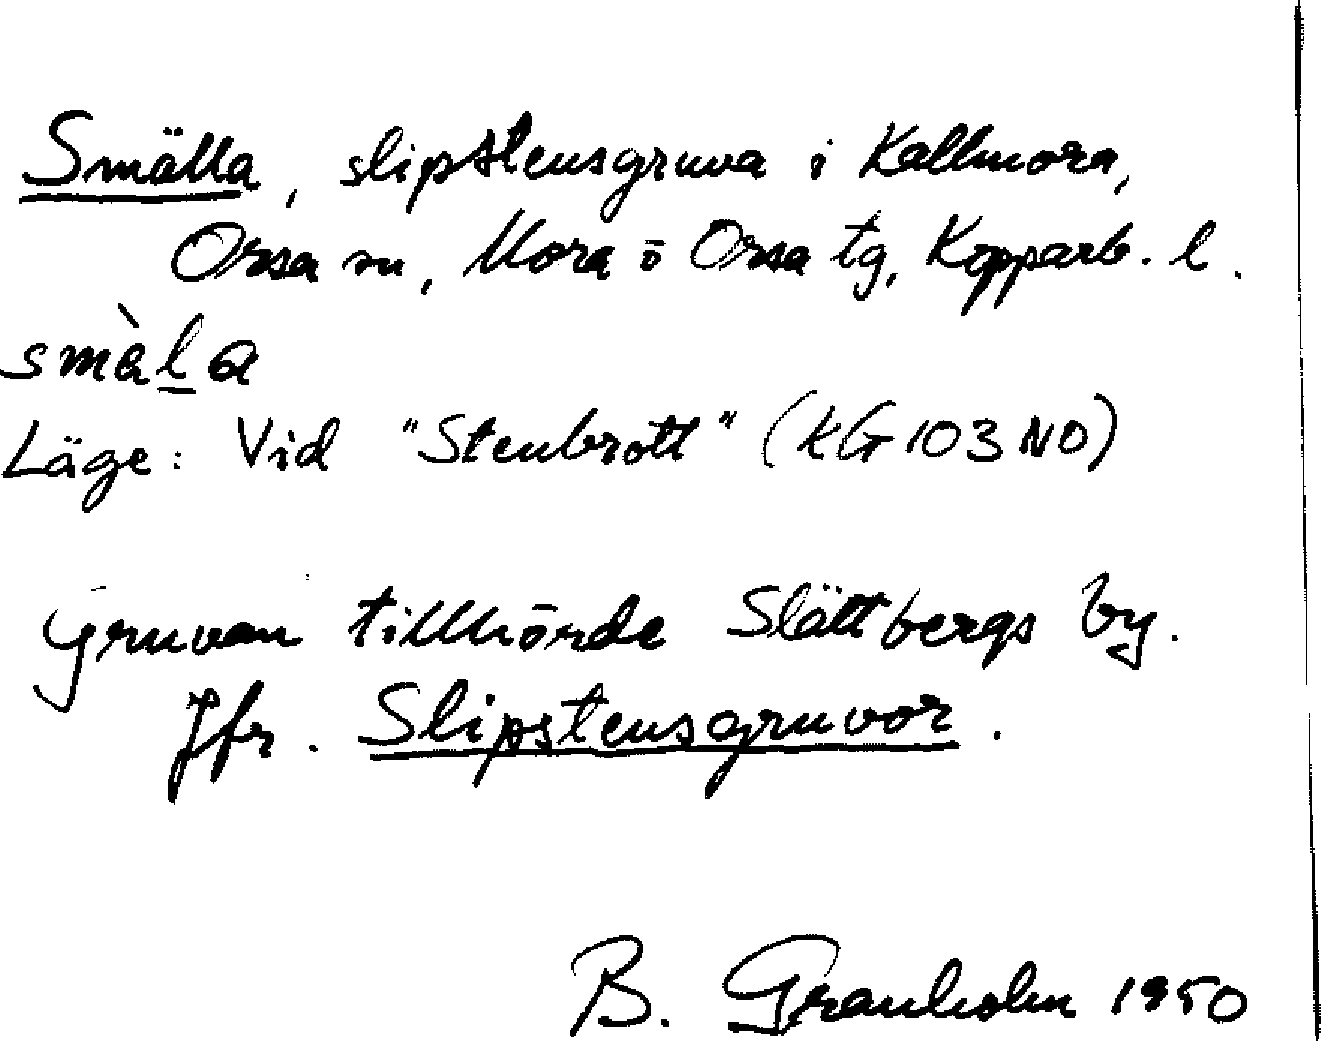 Smälla, slipstensgruva i Kallmora,
Orsa sn, Mora o Orsa tg, Kopparb. l.
smà̱la
Läge: Vid "Stenbrott" (KG 103 NO)
Gruvan tillhörde Slättbergs by.
Jfr. Slipstensgruvor.
B. Granholm 1950